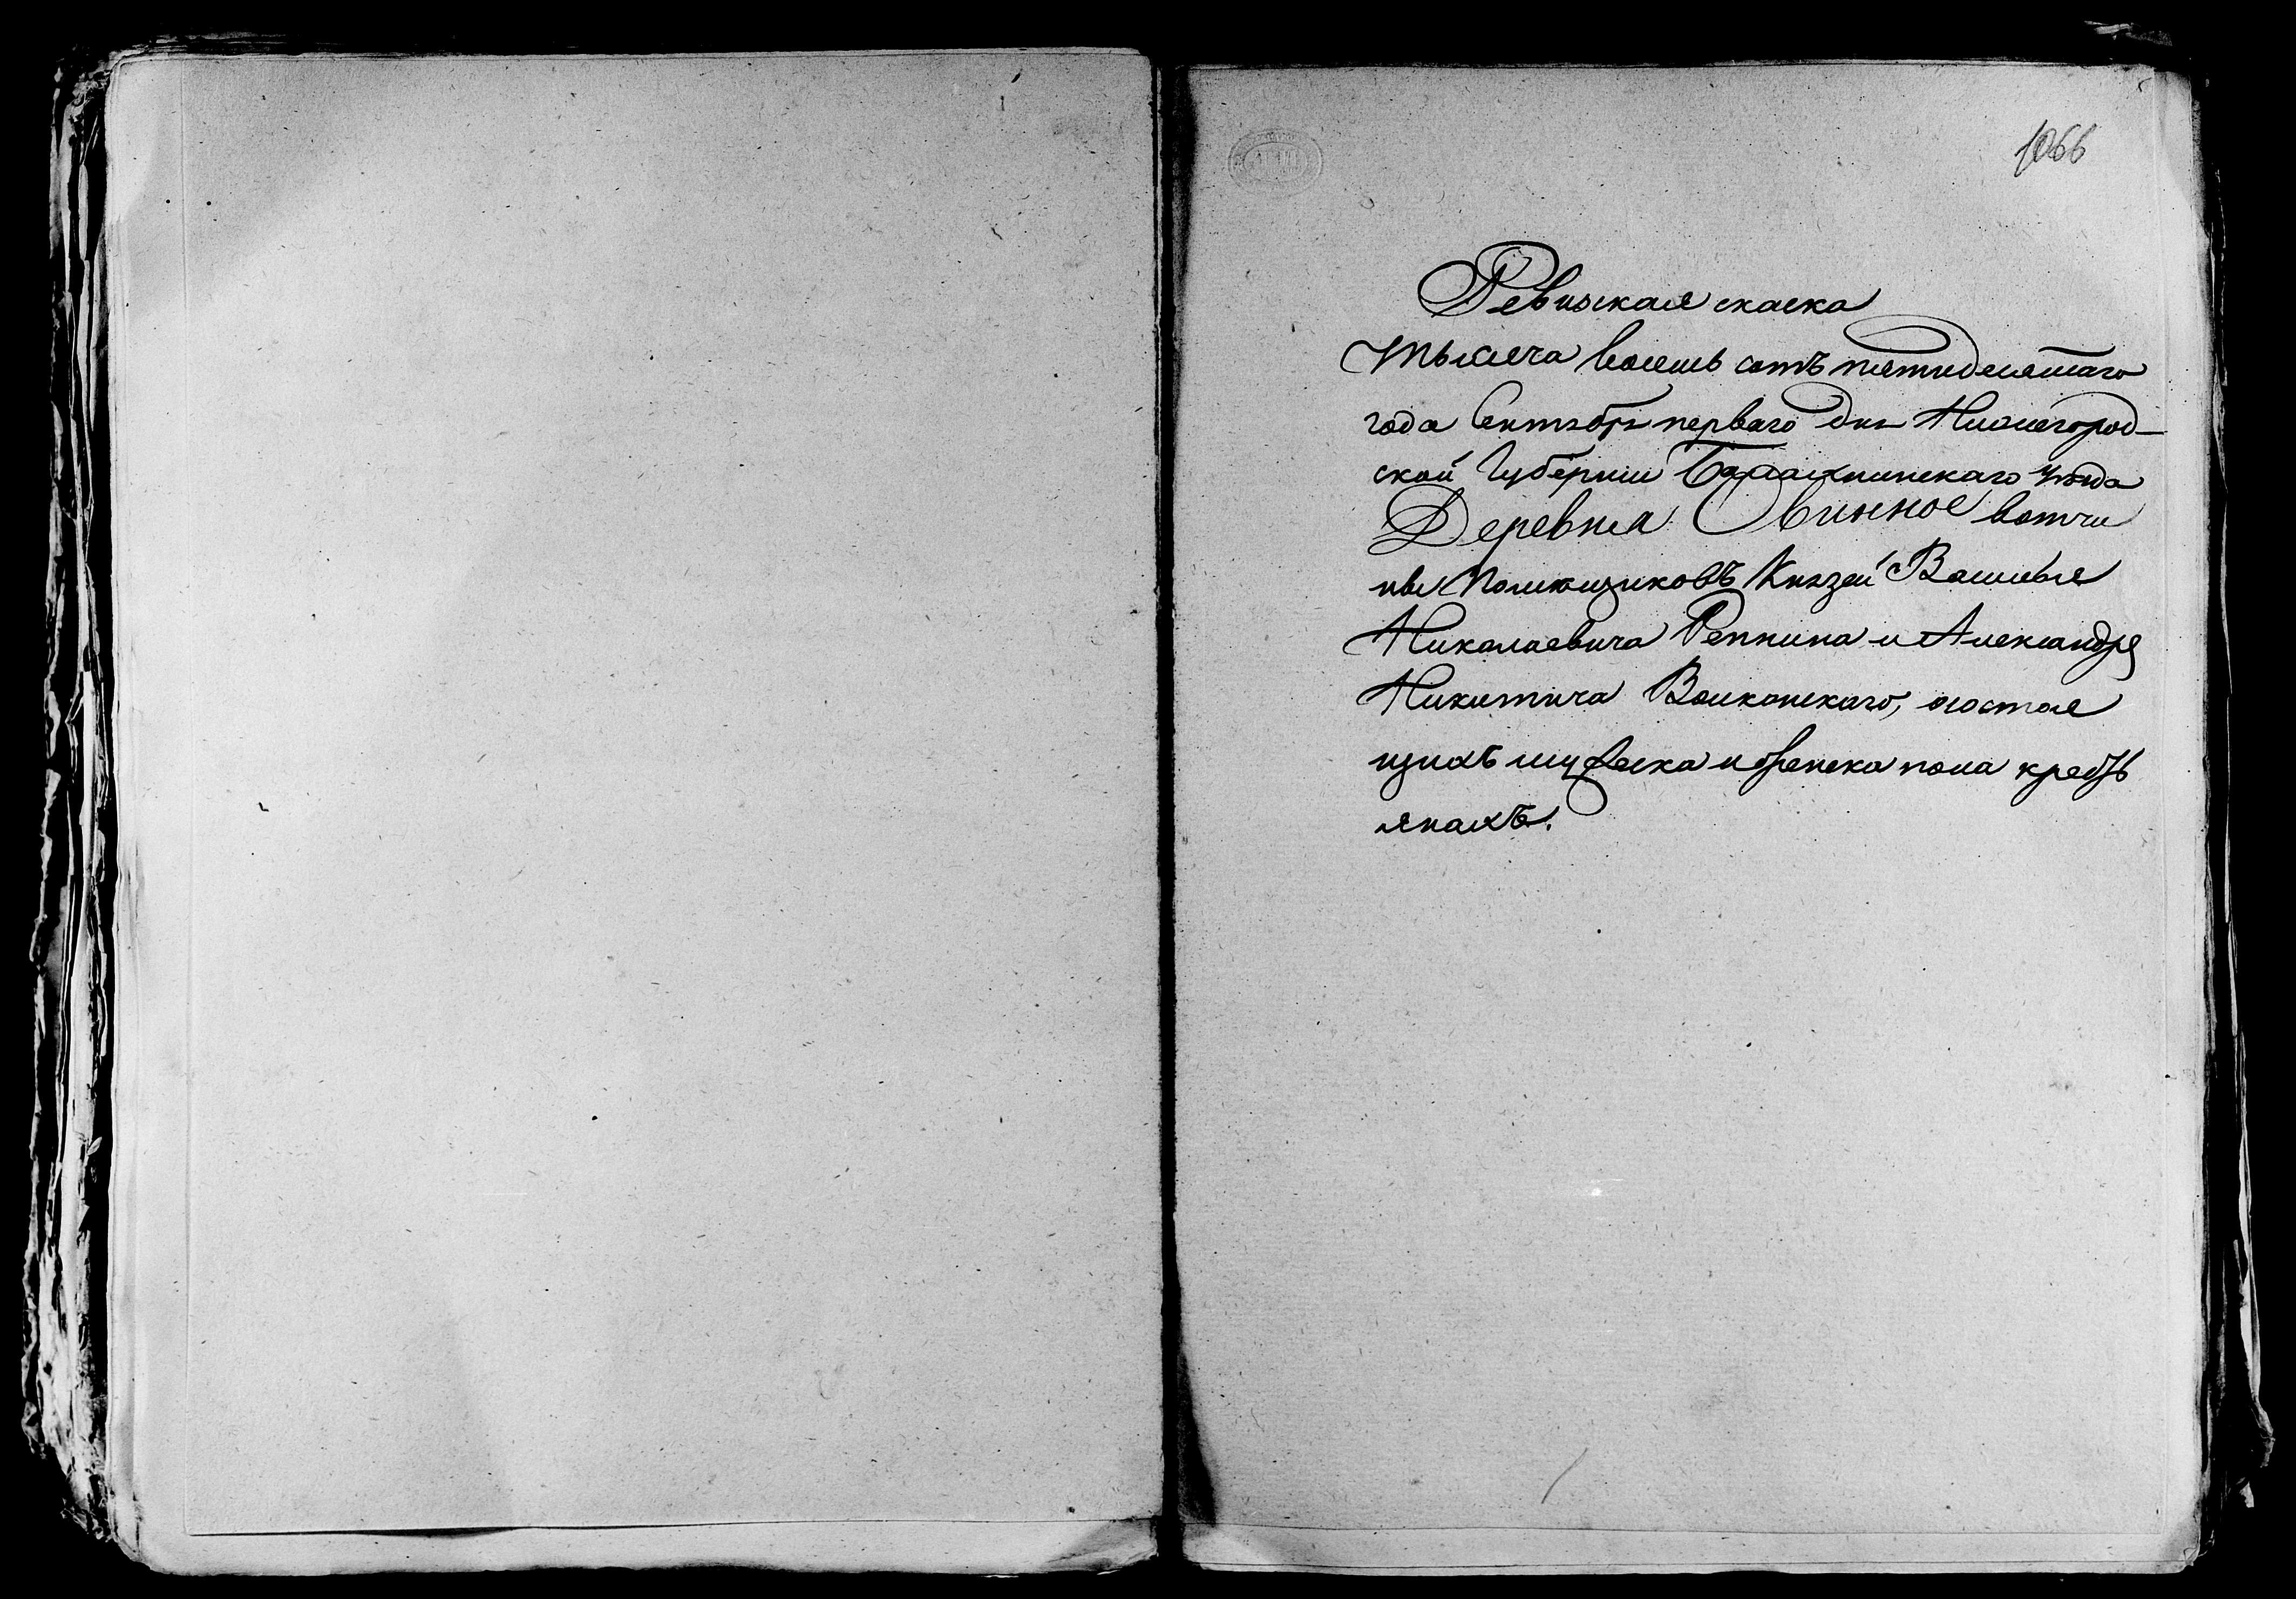 1066
Ревизская скаска
Тысеча восемь сотъ пятидесятаго
года Сентября перваго дня Нижегород-
ской Губернии Балахнинскаго уезда
Деревня Свинное вотчи
ны Помещиковъ Князей Василья
Николаевича Репнина и Александра
Никитича Волконскаго, о состоя
щихъ мужеска и женска пола кресть
янахъ.